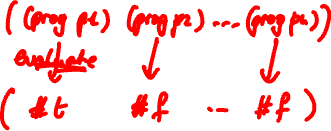 ((prog p1) (prog p2) ... (prog pn))
evaluate
(#t #f .. #f)